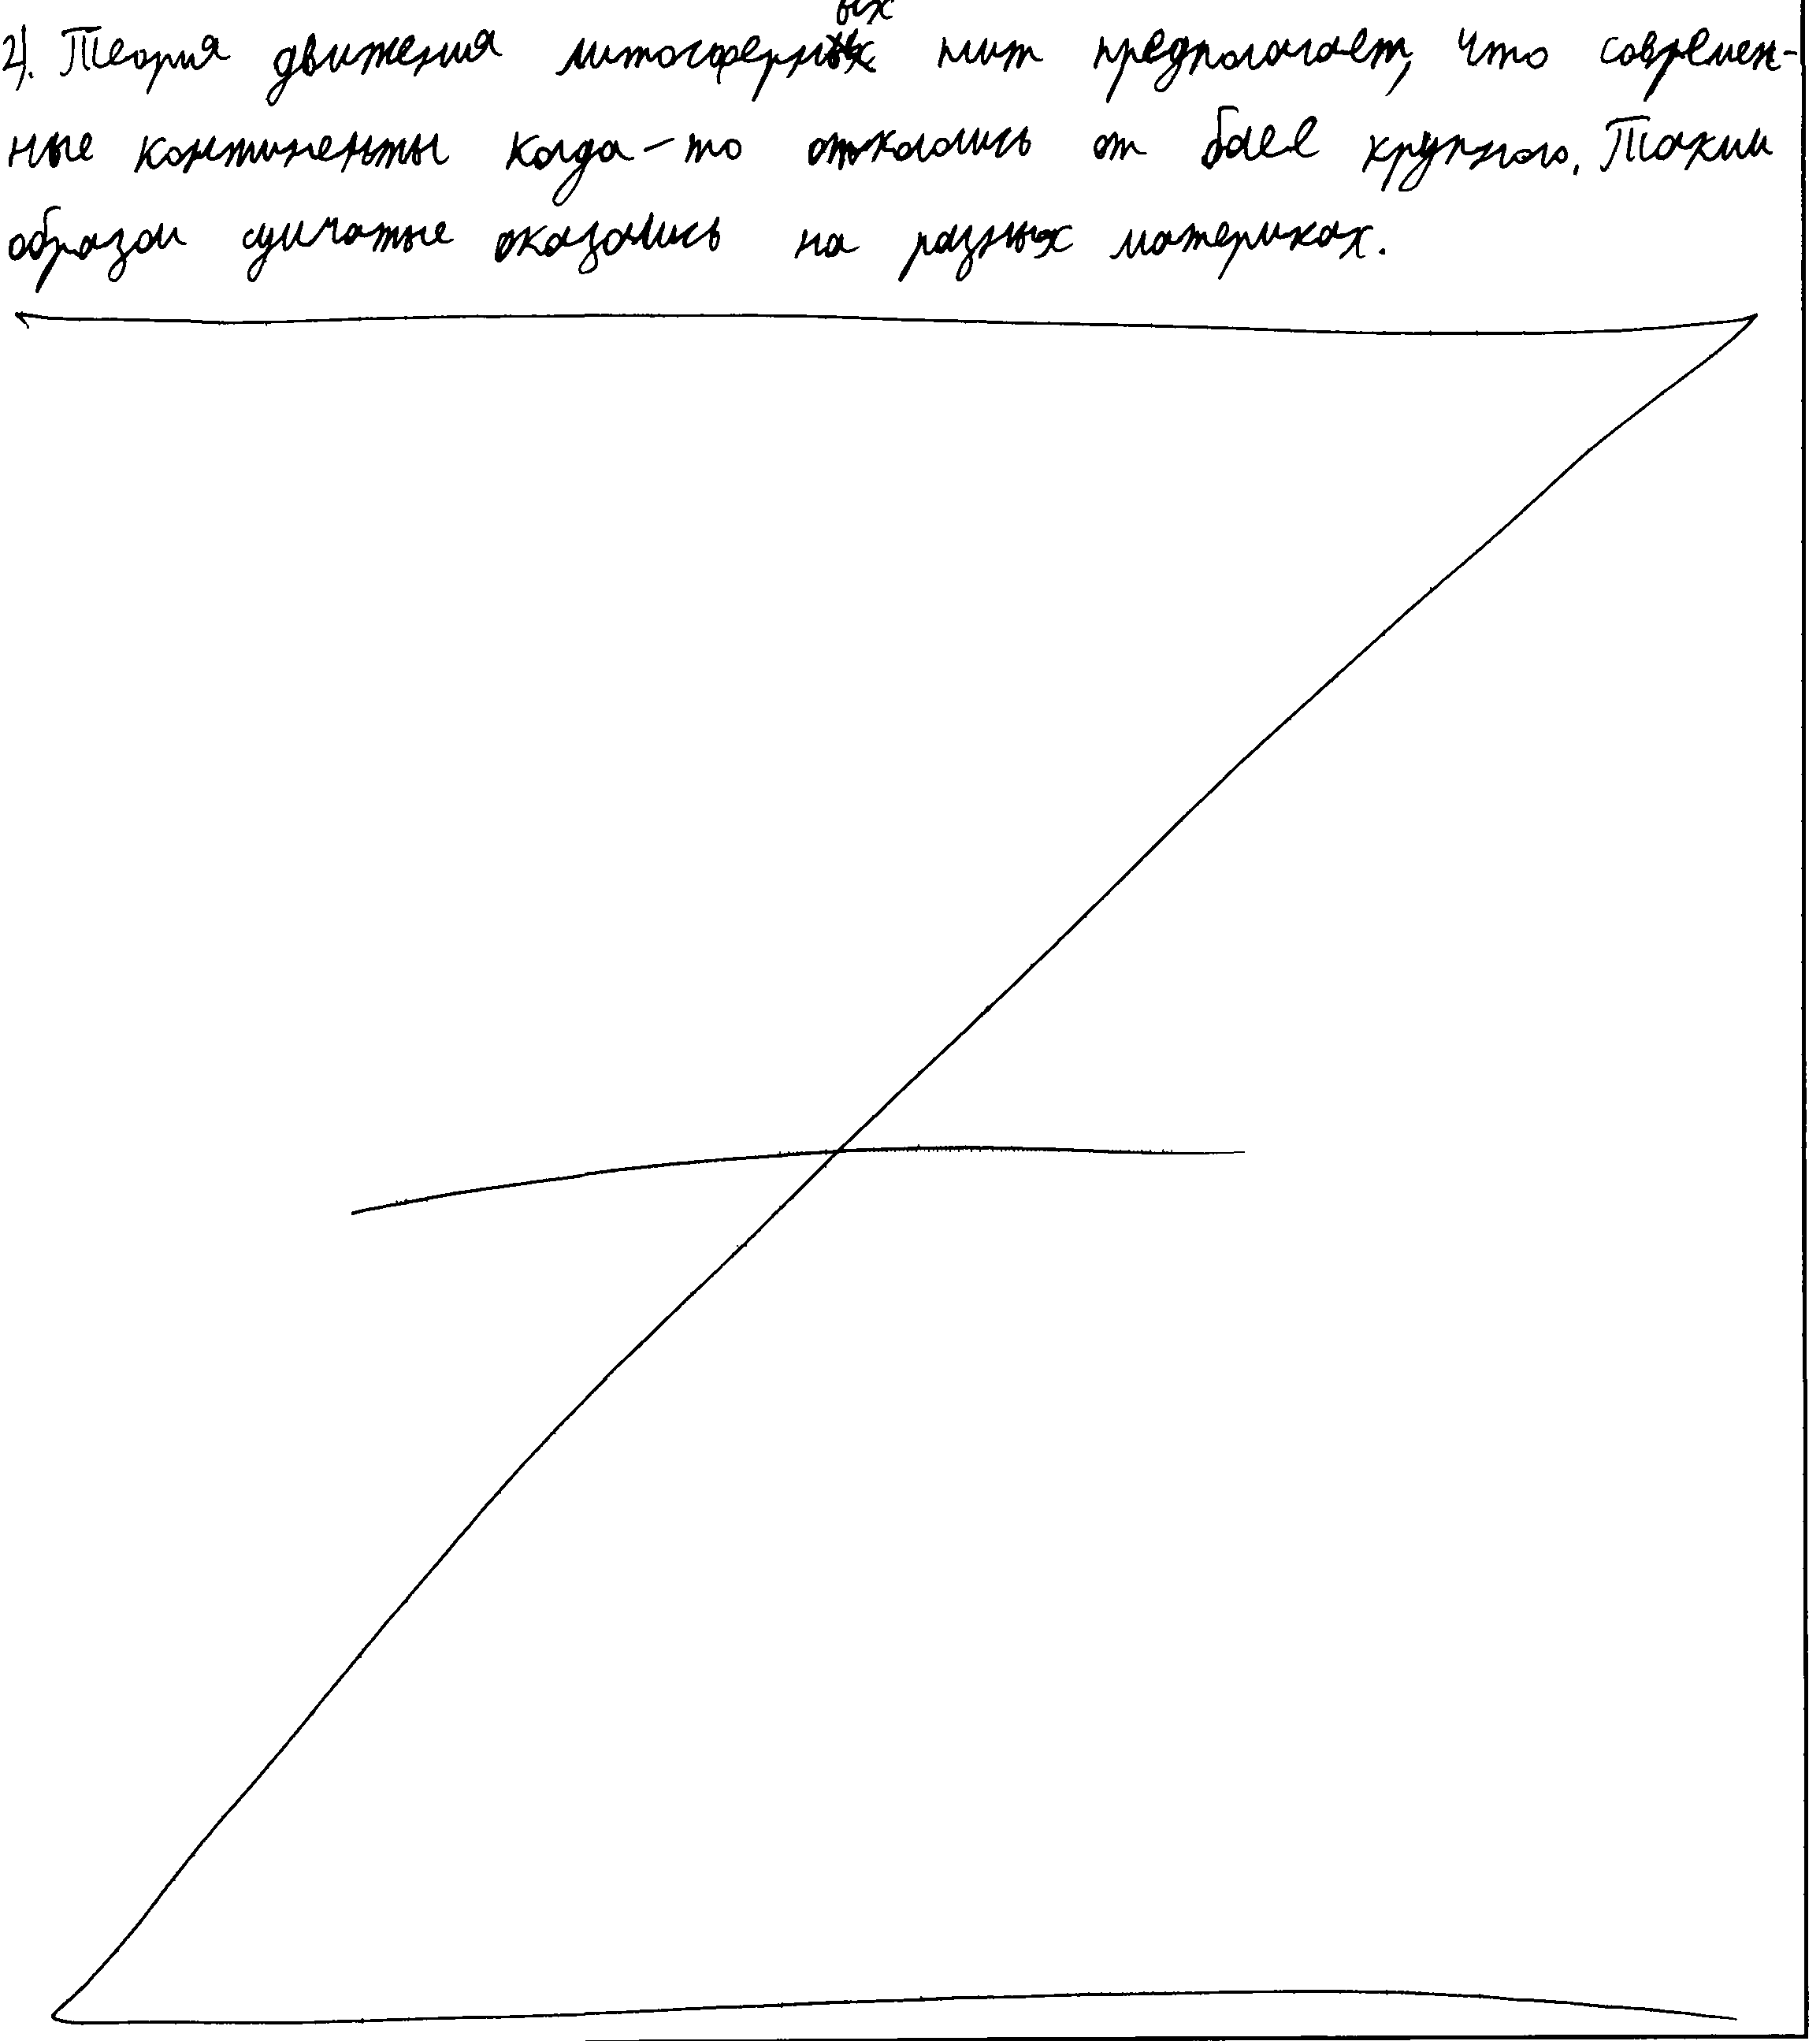 2). Теория движения литосферных плит предполагает, что современ-
ные континенты когда-то откололись от более крупного. Таким
образом сумчатые оказались на разных материках.